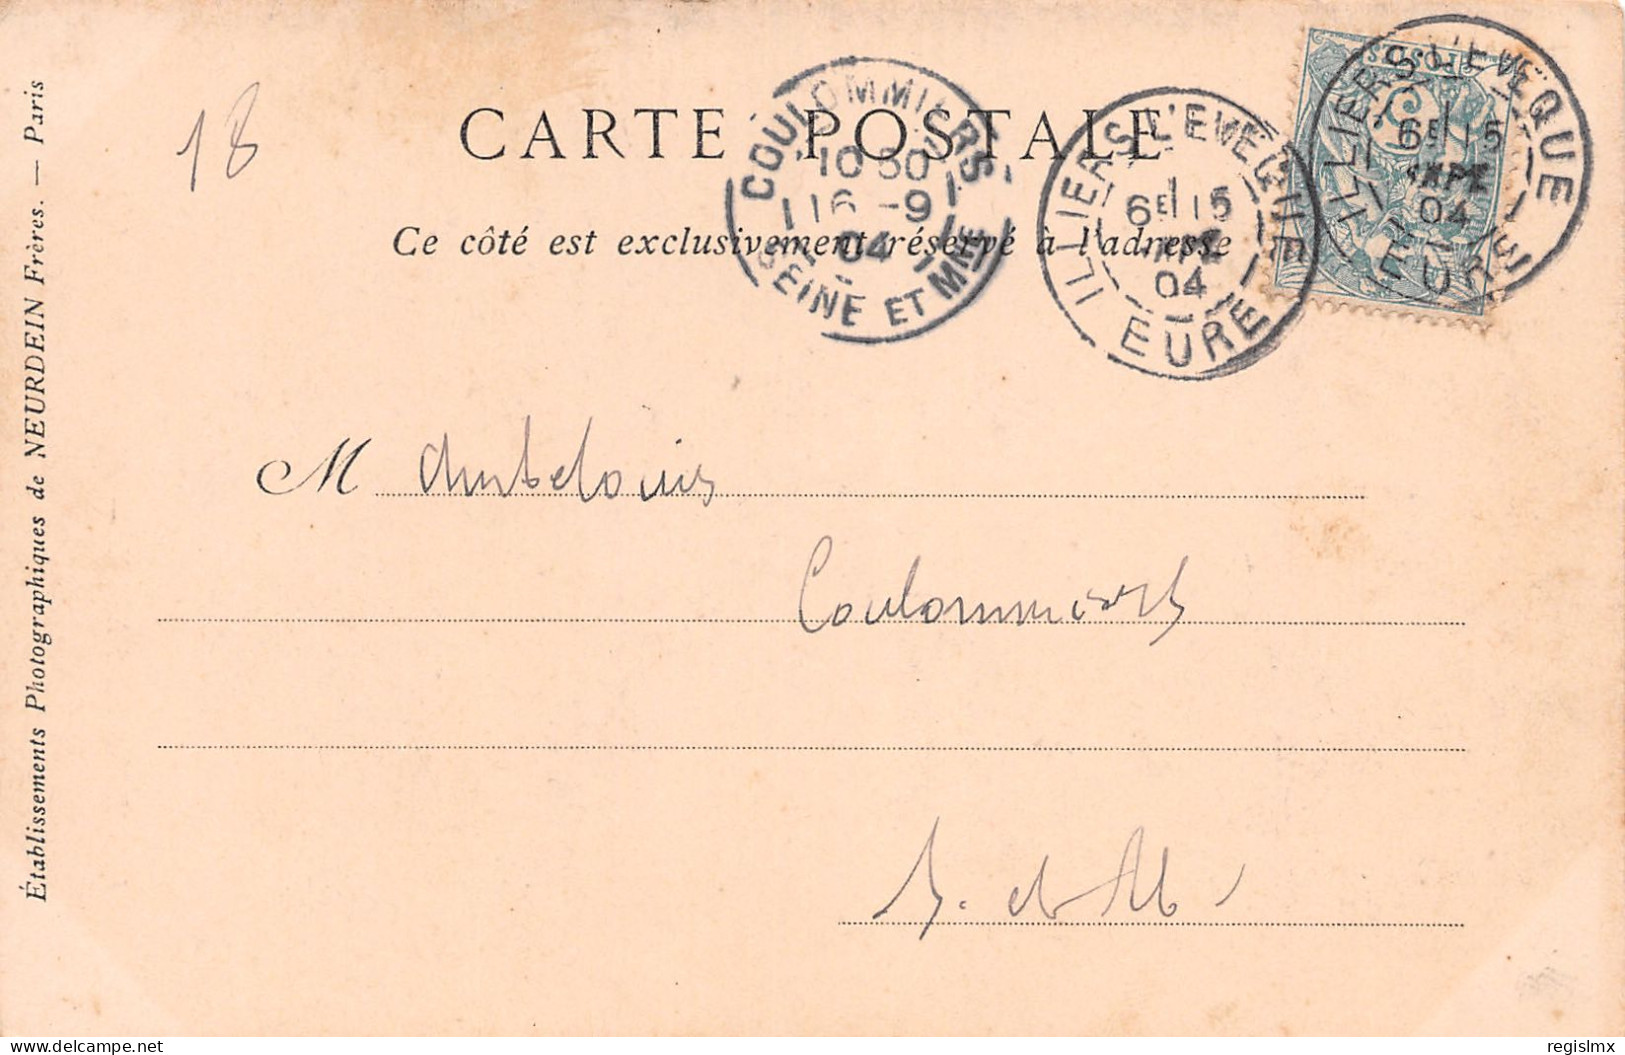 18
CARTE POSTALE
Ce côté est exclusivement réservé à l'adresse
COULOMMIERS
10 30
16 -9
04
SEINE ET MNE
ILLIERS L'EVEQUE
6E 15
04
EURE
ILLIERS L'EVEQUE
6E 15
04
EURE
POSTES
5
M
Coulommiers
S. et M.
Établissements Photographiques de NEURDEIN Frères. — Paris
delcampe.net
regislmx